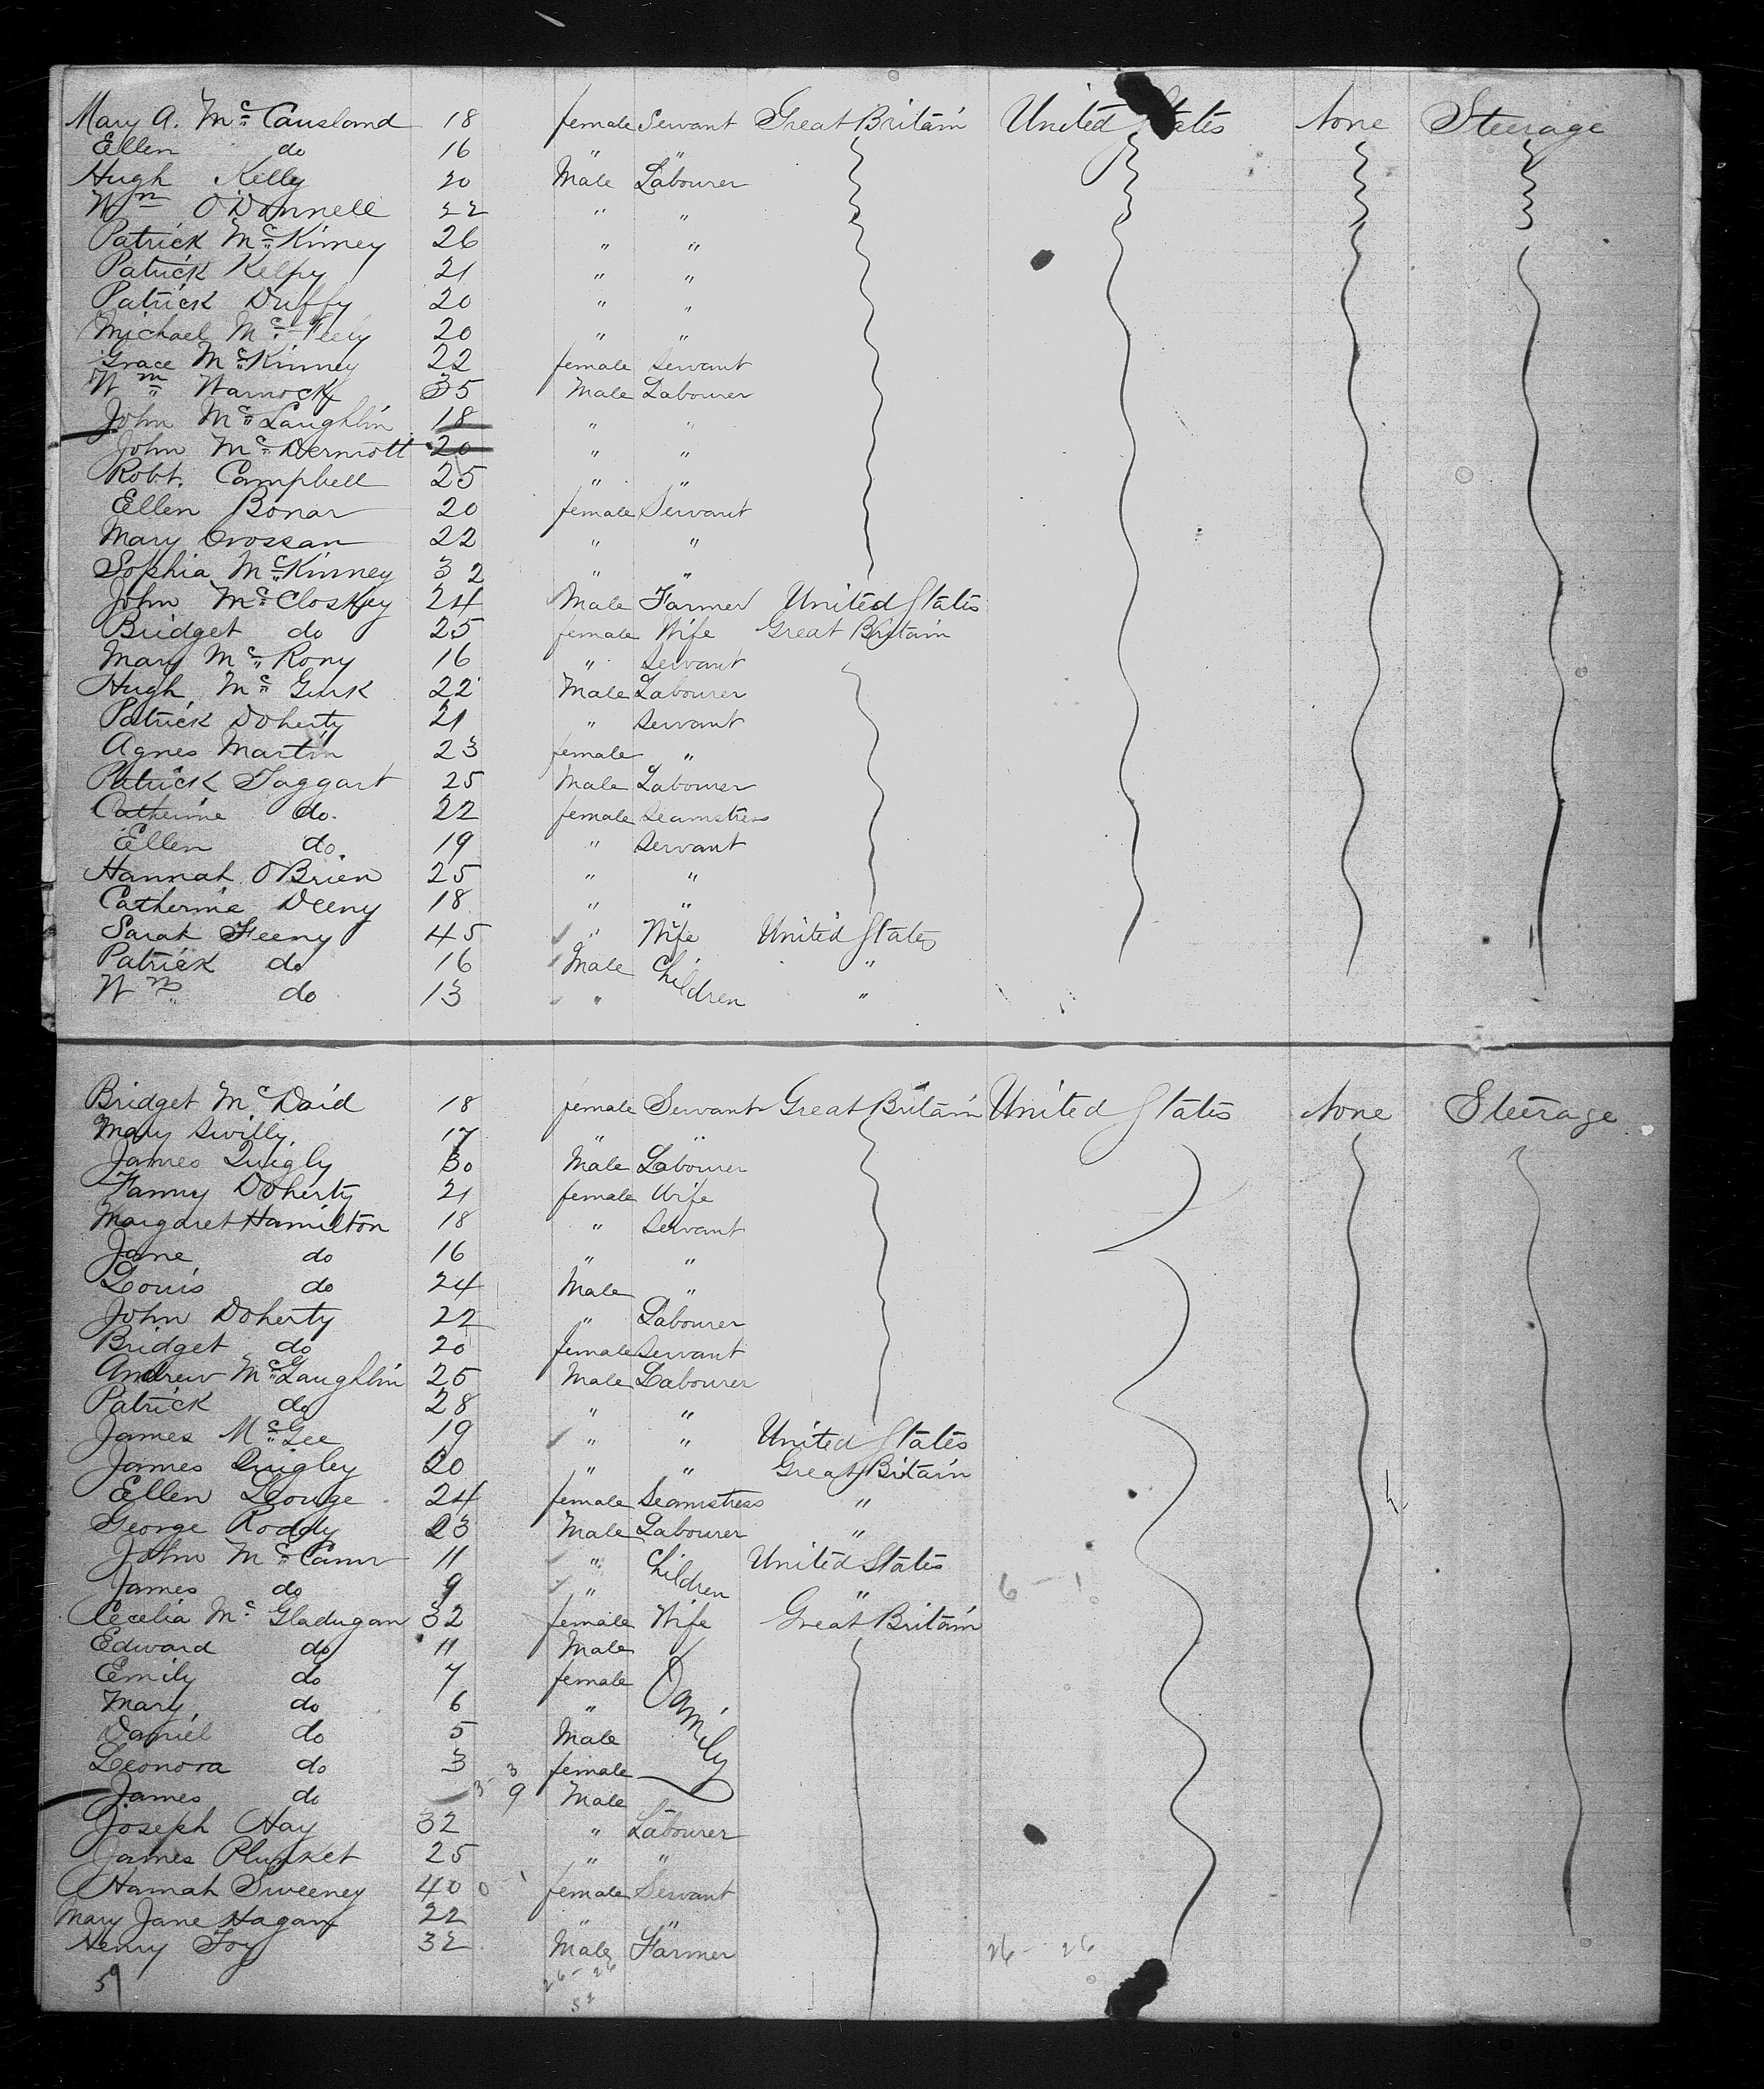 Mary A. Mc Causland 18 female Servant Great Britain United States None Steerage
Ellen do 16 " "
Hugh Kelly 20 Male Labourer
Wm O'Donnell 22 " "
Patrick Mc Kinney 26 " "
Patrick Kelpy 21 " "
Patrick Duffy 20 " "
Michael Mc Feely 20 " "
Grace Mc Kinney 22 female Servant
Wm Warnock 35 Male Labourer
John Mc Laughlin 18 " "
John Mc Dermott 20 " "
Robt. Campbell 25 " "
Ellen Bonar 20 female Servant
Mary Crossan 22 " "
Sophia Mc Kinney 32 " "
John Mc Closkey 24 Male Farmer United States
Bridget do 25 female Wife Great Britain
Mary Mc Rony 16 " Servant
Hugh Mc Gurk 22 Male Labourer
Patrick Doherty 21 " Servant
Agnes Martin 23 female "
Patrick Taggart 25 Male Labourer
Catherine do. 22 female Seamstress
Ellen do. 19 " Servant
Hannah O'Brien 25 " "
Catherine Deeny 18 " "
Sarah Feeny 45 " Wife United States
Patrick do 16 Male Children "
Wm do 13 " "
Bridget Mc Daid 18 female Servant Great Britain United States None Steerage
Mary Swilly. 17 " "
James Quigly 30 Male Labourer
Fanny Doherty 21 female Wife
Margaret Hamilton 18 " Servant
Jane do 16 " "
Louis do 24 Male "
John Doherty 22 " Labourer
Bridget do 20 female Servant
Andrew Mc Laughlin 25 Male Labourer
Patrick do 28 " "
James Mc Gee 19 " " United States
James Quigley 20 " " Great Britain
Ellen 24 female Seamstress "
George Roddy 23 Male Labourer "
John Mc Cann 11 " Children United States
James do 9 " " 6 - 1
Cecelia Mc Gladugan 32 female Wife Great Britain
Edward do 11 Male Family
Emily do 7 female
Mary do 6 "
Daniel do 5 Male
Leonora do 3 female
James do 9 Male
Joseph Hay 32 " Labourer
James Plunket 25 " "
Hannah Sweeney 40 female Servant
Mary Jane Hagan 22 " "
Henry Foy 32 Male Farmer 26 - 26
59 26 - 26
52